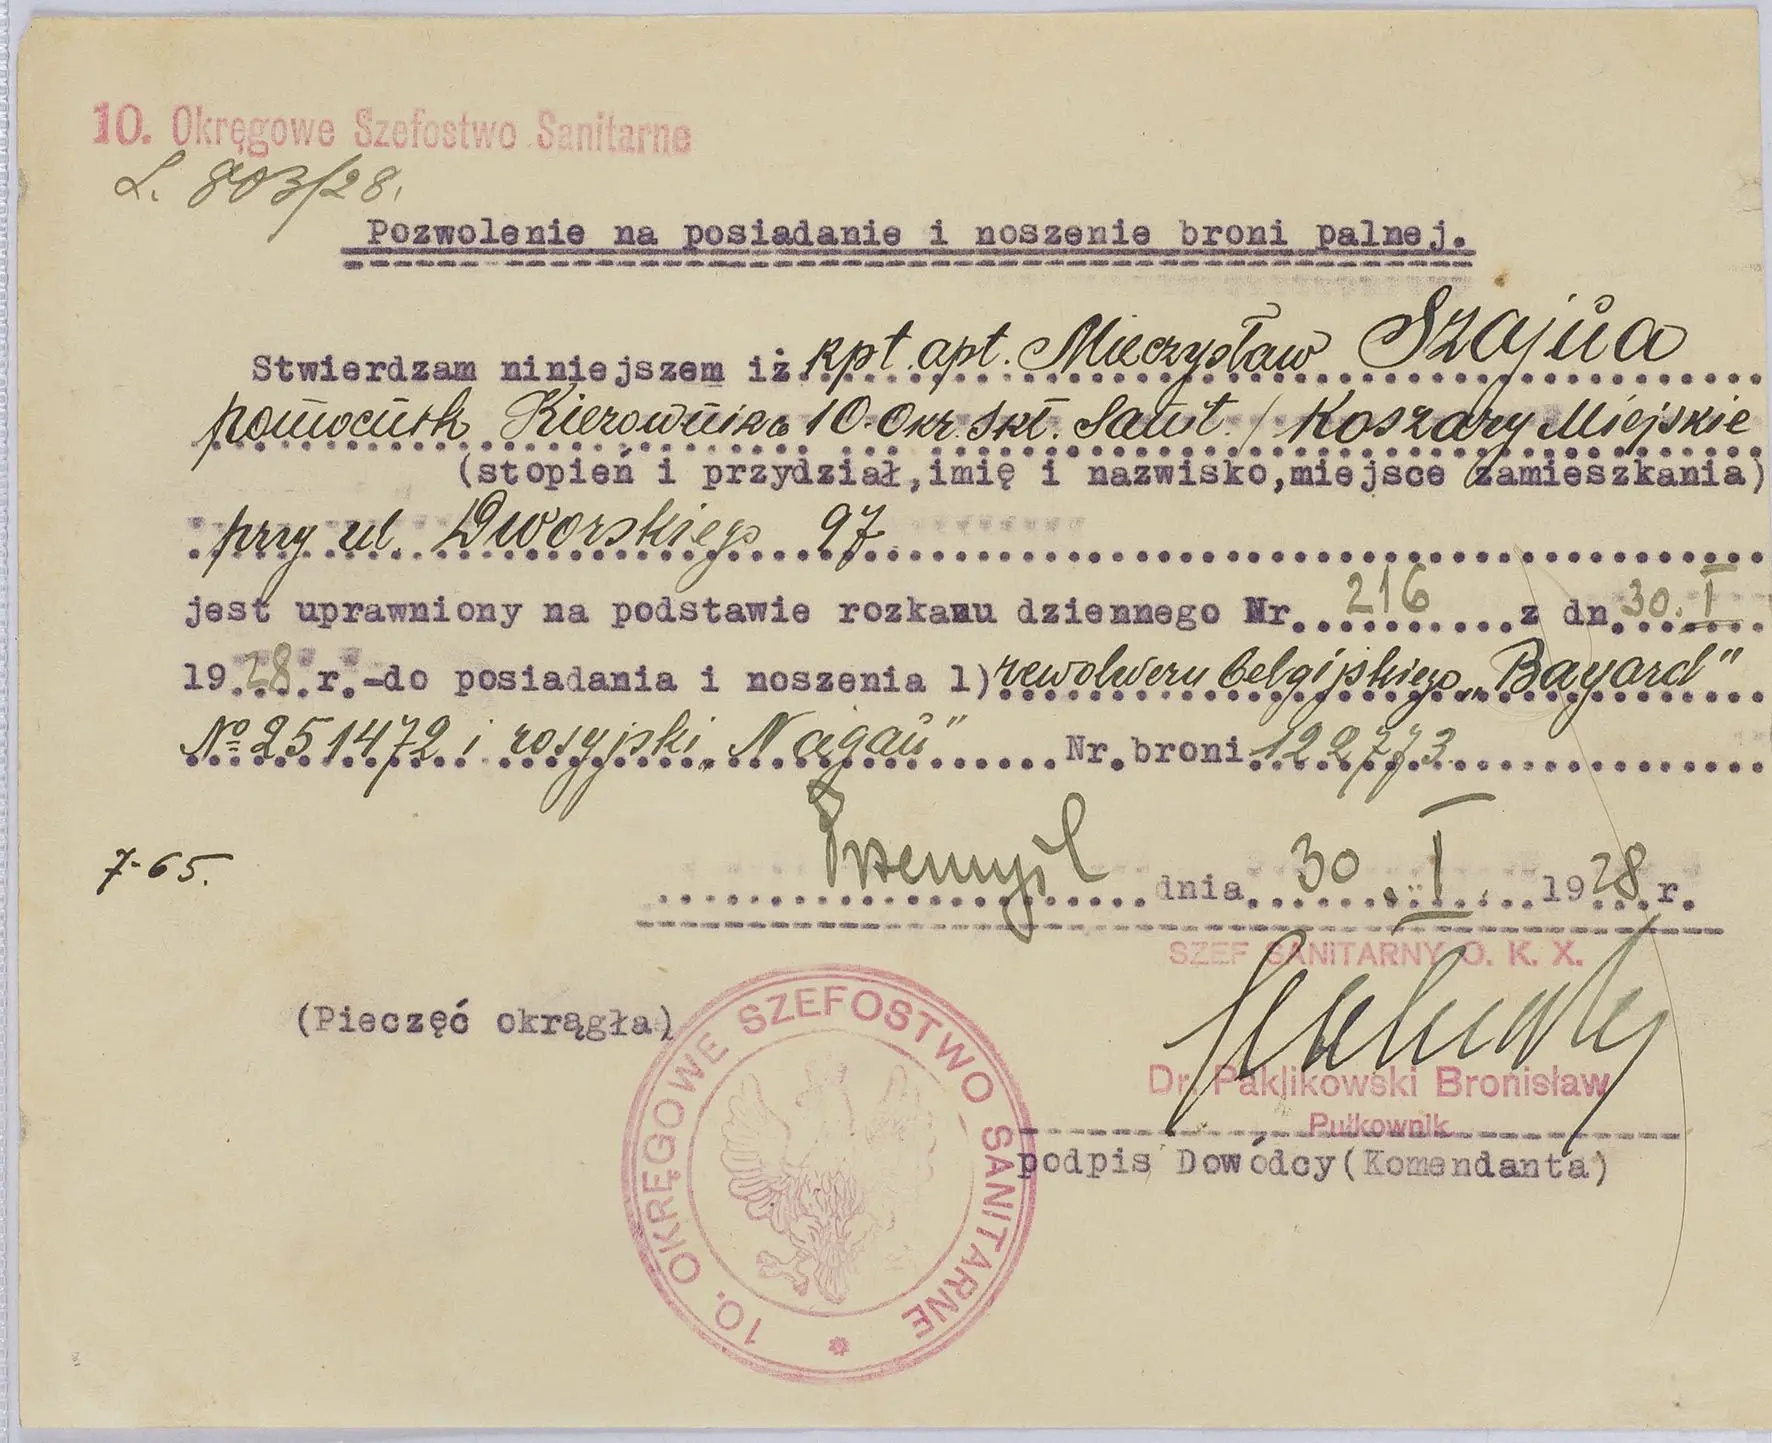 10. Okręgowe Szefostwo Sanitarne
L. 803/28.
Pozwolenie na posiadanie i noszenie broni palnej.
Stwierdzam niniejszem iż kpt. apt. Mieczysław Szajna
pomocnik Kierownika 10. Okr. Skł. Sanit. / Koszary Miejskie
(stopień i przydział, imię i nazwisko, miejsce zamieszkania)
przy ul. Dworskiego 97
jest uprawniony na podstawie rozkazu dziennego Nr. 216 z dn. 30. I
1928 r.-do posiadania i noszenia 1) rewolweru belgijskiego „Bayard”
No 251472 i rosyjski „Nagan” Nr. broni 122773.
7-65.
Przemyśl dnia 30. I. 1928 r.
SZEF SANITARNY O. K. X.
(Pieczęć okrągła)
Dr. Paklikowski Bronisław
Pułkownik
podpis Dowódcy (Komendanta)
10. OKRĘGOWE SZEFOSTWO SANITARNE *